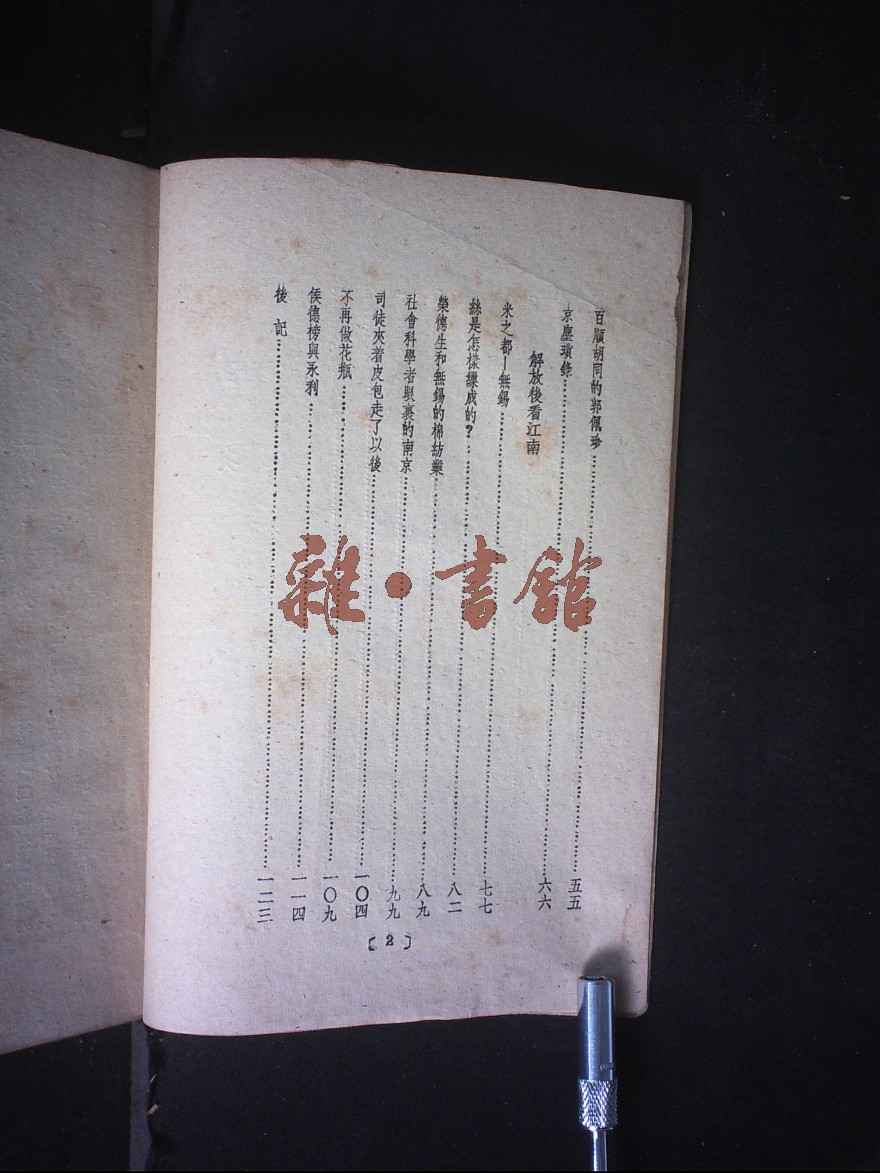 百順胡同的郭佩珍……五五
京塵瑣錄……六六
解放後看江南
米之都—無錫……七七
絲是怎樣繅成的？……八二
榮德生和無錫的棉紡業……八九
社會科學者眼裏的南京……九九
司徒夾着皮包走了以後……一〇四
不再做花瓶……一〇九
侯德榜與永利……一一四
後記……一二三
〔2〕
雜·書館